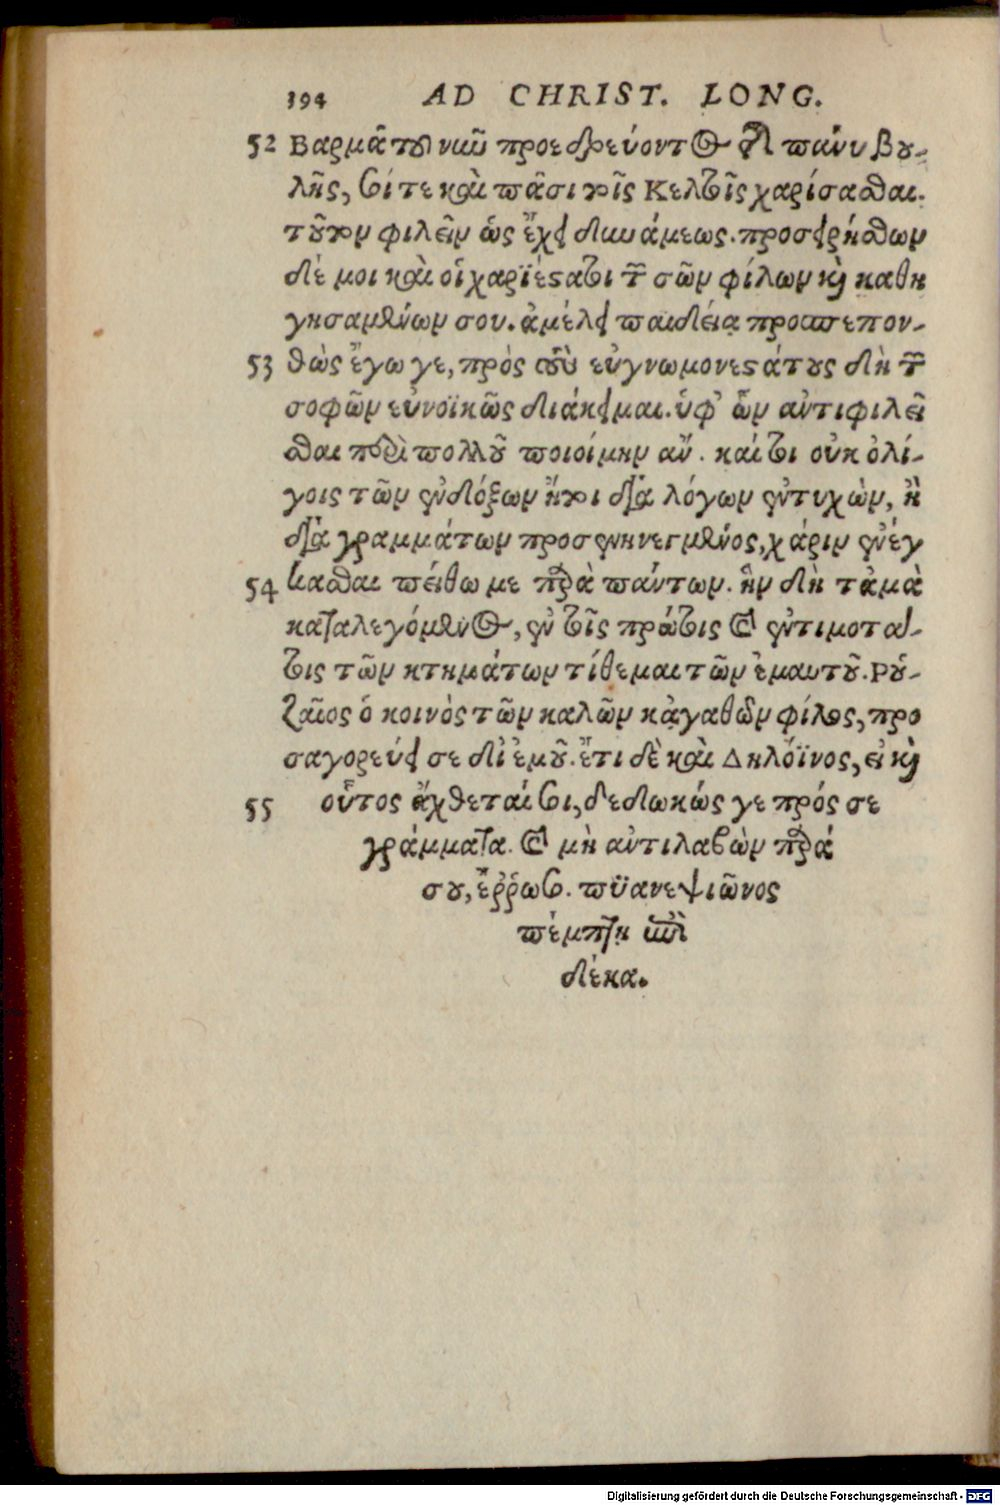 194 AD CHRIST. LONG.
52 Βαρμᾶ τοῦ νῦν προεδρεύοντος τῆς πάνυ βου-
λῆς, σοί τε καὶ πᾶσι τοῖς Κελτοῖς χαρίσασθαι.
τοῦτον φιλεῖν ὡς ἔχει δυνάμεως. προσειρήσθων
δέ μοι καὶ οἱ χαριέστατοι τῶν σῶν φίλων καὶ καθη
γησαμένων σου. ἀμέλει παιδείᾳ προσπεπον-
53 θὼς ἔγωγε, πρὸς τοὺς εὐγνωμονεστάτους δὴ τῶν
σοφῶν εὐνοϊκῶς διάκειμαι. ὑφ' ὧν ἀντιφιλεῖ
σθαι περὶ πολλοῦ ποιοίμην ἄν. καί τοι οὐκ ὀλί-
γοις τῶν ἐνδόξων ἤτοι διὰ λόγων ἐντυχὼν, ἢ
διὰ γραμμάτων προσενηνεγμένος, χάριν ἐνέγ
54 κασθαι πείθω με παρὰ πάντων. ἣν δὴ τἀμὰ
καταλεγόμενος, ἐν τοῖς πρώτοις καὶ ἐντιμοτά-
τοις τῶν κτημάτων τίθεμαι τῶν ἐμαυτοῦ. Ρού-
ζαῖος ὁ κοινὸς τῶν καλῶν κἀγαθῶν φίλος, προ
σαγορεύει σε δι' ἐμοῦ. ἔτι δὲ καὶ Δηλόϊνος, εἰ καὶ
55 οὗτος ἄχθεταί σοι, δεδωκώς γε πρός σε
γράμματα. καὶ μὴ ἀντιλαβὼν παρά
σου, ἔῤῥωσο. πϋανεψιῶνος
πέμπτῃ ἐπὶ
δέκα.
Digitalisierung gefördert durch die Deutsche Forschungsgemeinschaft - DFG